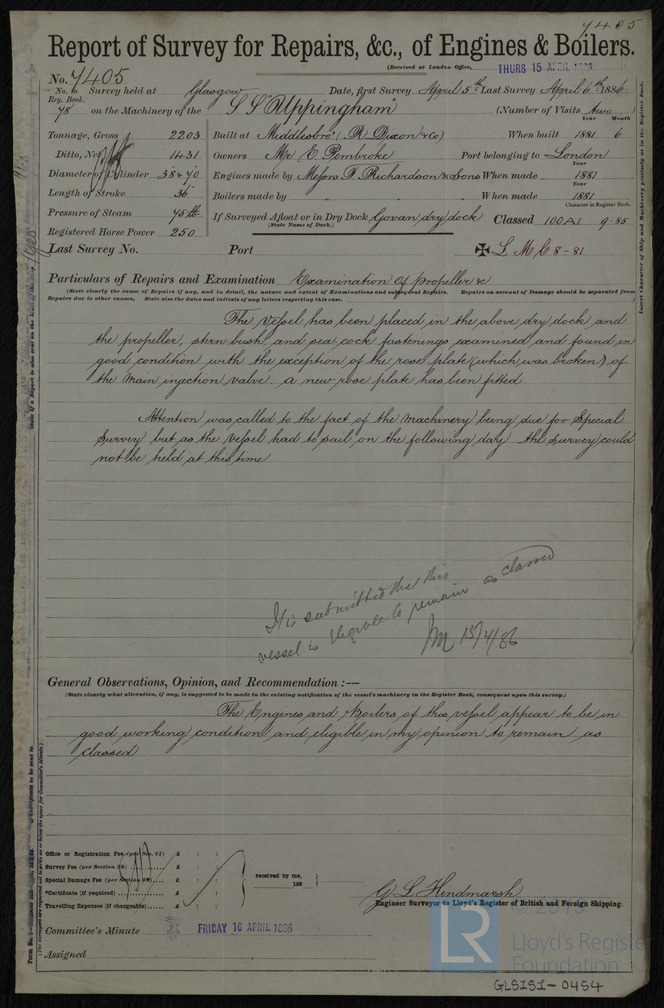 7405
Report of Survey for Repairs, &c., of Engines & Boilers.
(Received at London Office, THURS 15 APRIL 1886
No. 7405
No. in Reg. Book. 78
Survey held at Glasgow Date, first Survey April 5th Last Survey April 6th 1886
on the Machinery of the S S "Uppingham" (Number of Visits Two
Tonnage, Gross 2203 Built at Middlesbro' (R Dixon & Co) When built 1881 6
Year Month
Ditto, Net 1431 Owners Port belonging to London
Diameter of Cylinder 38 & 70 Engines made by Messrs T Richardson & Sons When made 1881
Length of Stroke 36 Boilers made by " " When made 1881
Pressure of Steam 75 lb If Surveyed Afloat or in Dry Dock Govan dry dock Classed 100 A1 9-85
(State Name of Dock.) Character in Register Book.
Registered Horse Power 250
Last Survey No. Port L M C 8-81
Particulars of Repairs and Examination Examination of propeller &c
(State clearly the cause of Repairs if any, and in detail, the nature and extent of Examinations and subsequent Repairs. Repairs on account of Damage should be separated from
Repairs due to other causes. State also the dates and initials of any letters respecting this case.
The vessel has been placed in the above dry dock and
the propeller, stern bush and sea cock fastenings examined and found in
good condition with the exception of the rose plate (which was broken) of
the main injection valve. a new rose plate has been fitted
Attention was called to the fact of the machinery being due for Special
Survey but as the vessel had to sail on the following day the survey could
not be held at this time
It is submitted that this
vessel is eligible to remain as classed
15/4/86
General Observations, Opinion, and Recommendation :—
(State clearly what alteration, if any, is suggested to be made in the existing notification of the vessel's machinery in the Register Book, consequent upon this survey.)
The Engines and Boilers of this vessel appear to be in
good working condition and eligible in my opinion to remain as
classed
Office or Registration Fee £ : :
Survey Fee (per Section 28) £ : :
Special Damage Fee £ : :
*Certificate (if required) £ : :
Travelling Expenses (if chargeable) £ : :
received by me,
188
G L Hindmarsh
Engineer Surveyor to Lloyd's Register of British and Foreign Shipping.
Committee's Minute FRIDAY 16 APRIL 1886
Assigned
LR
Lloyd's Register
Foundation
GLSISI-0454